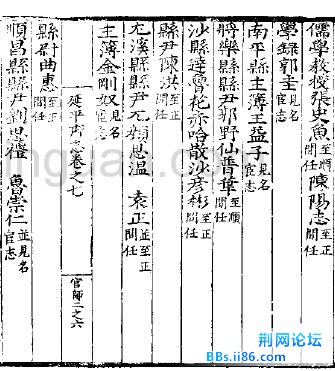 儒學教授張史魚至順間任 陳陽志至正間任
學錄郭圭見名宦志
南平縣主簿王益子見名宦志
將樂縣縣尹邪野仙普華至順間任
沙縣達魯花赤哈散沙彥彬至正間任
縣尹陳洪至正間任
尤溪縣縣尹元顏思溫 袁正並至正間任
主簿金剛奴見名宦志
延平府志卷之七 官師二之六
縣尉曲惠至正間任
順昌縣縣尹劉思禮 魯崇仁並見名宦志
荆网论坛
BBs.ii86.com